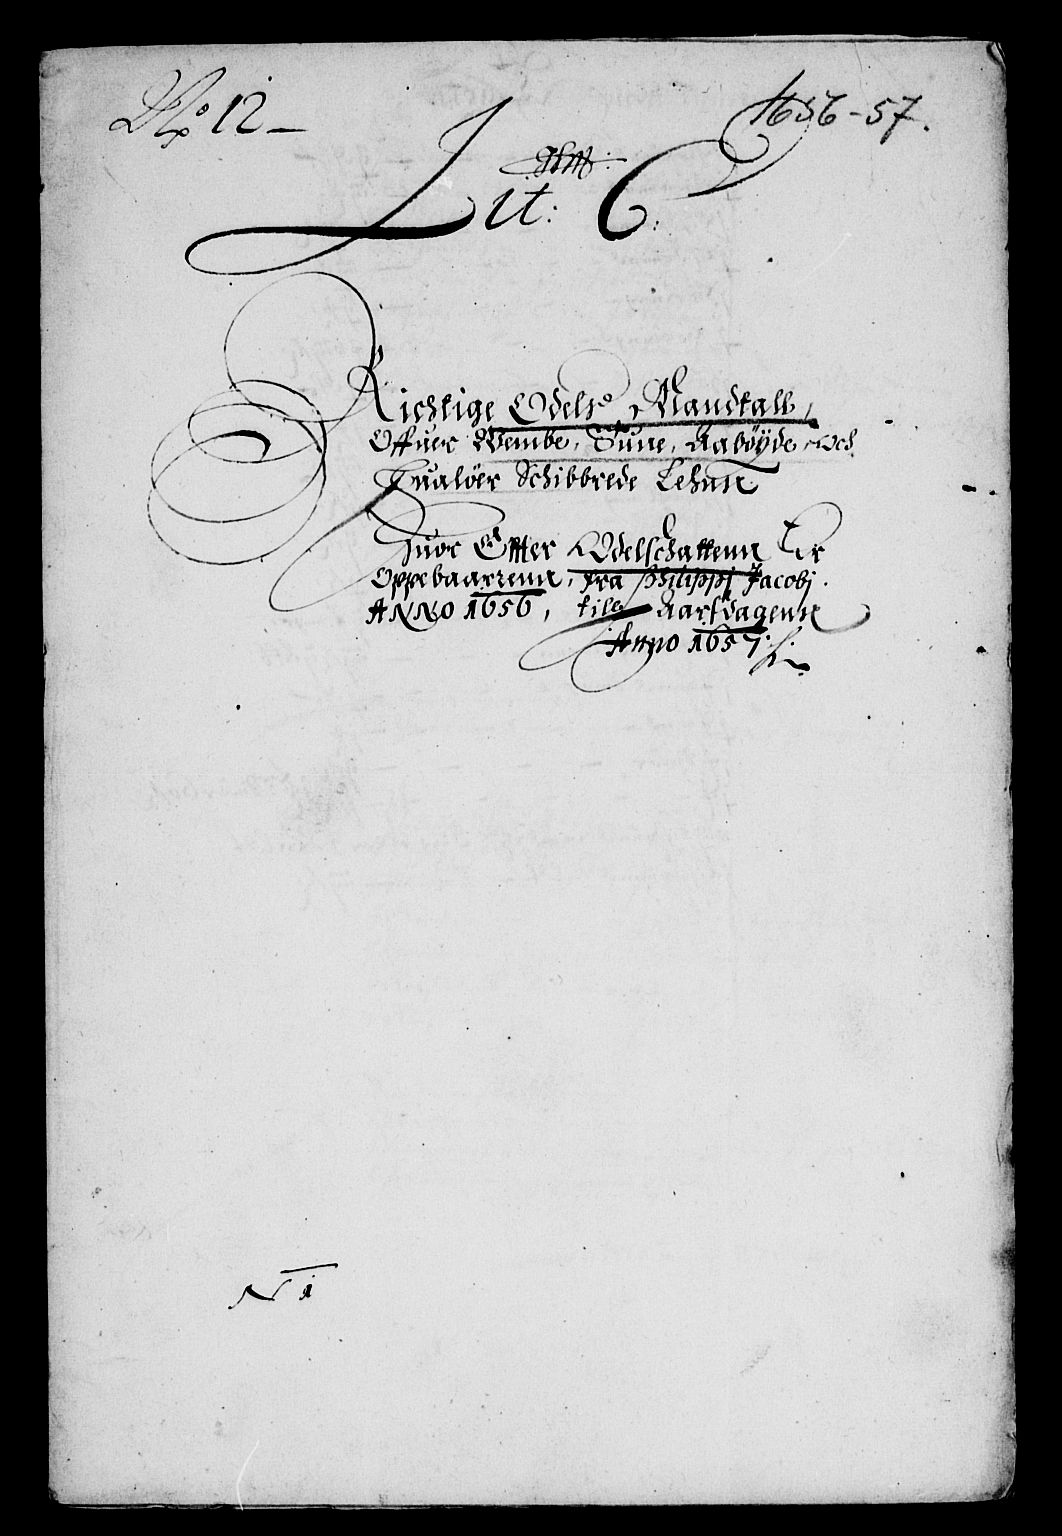 No 12
1656-57.
Lit: C.
Richtige Odels Mandtall,
Offuer Wembe, Tune, Aabøyde, Och
Hualöer Schibbrede Lehnn
Huor Effter Odelschattenn Er
Oppebaarrenn, fra Philippj Jacobj.
ANNO 1656, till Aarsdagenn
Anno 1657:
N 1